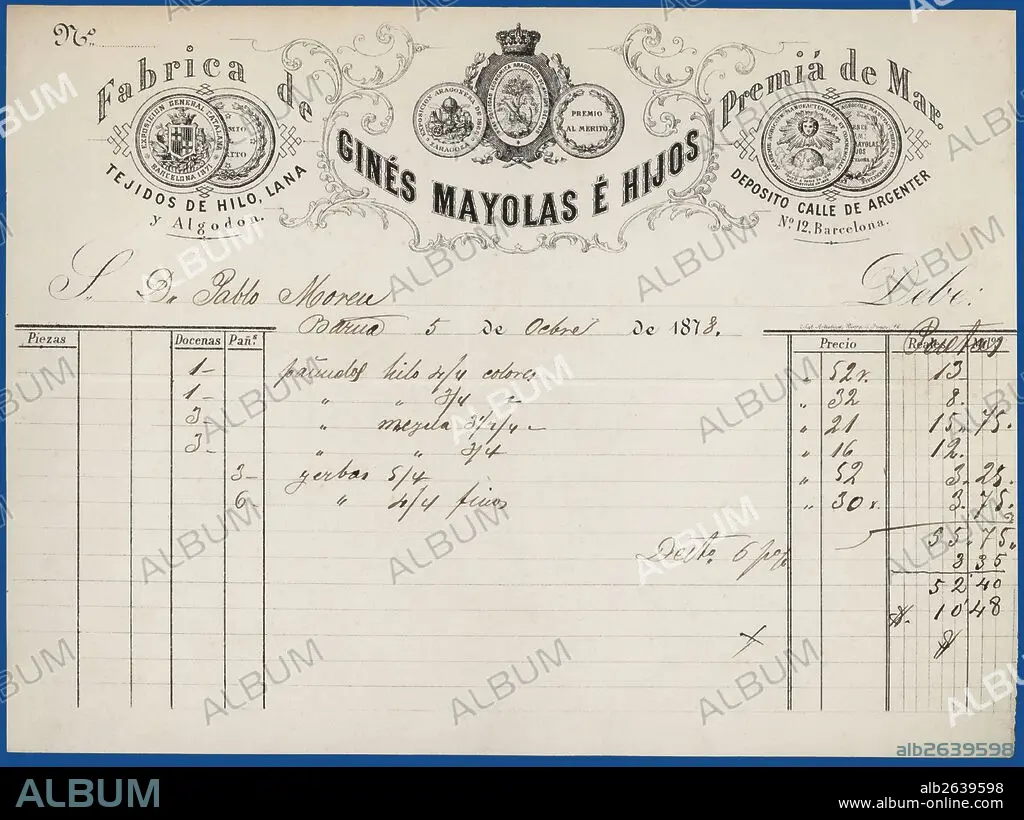 Nº
Fabrica de
Premiá de Mar.
EXPOSICION GENERAL CATALANA
BARCELONA 187
EXPOSICION ARAGONESA DE
ZARAGOZA
PREMIO
AL MERITO
GINÉS MAYOLAS É HIJOS
TEJIDOS DE HILO, LANA
y Algodon.
DEPOSITO CALLE DE ARGENTER
Nº 12, Barcelona.
S. Dn Pablo Moreu Debe:
Barna 5 de Ocbre de 1878.
Piezas Docenas Pañs Precio Reales
1 pañuelos hilo 4/4 colores " 52 r. 13
1 " " 3/4 " 32 8.
3 " mezcla 3 1/4/4 " 21 15.75.
3 " " 3/4 " 16 12.
3 yerbas 5/4 " 52 3.25.
6 " 4/4 finos " 30 r. 3.75.
55.75
Desto. 6 p% 3 35
52 40
$. 10 48
ALBUM
alb2639598
ALBUM
alb2639598
www.album-online.com